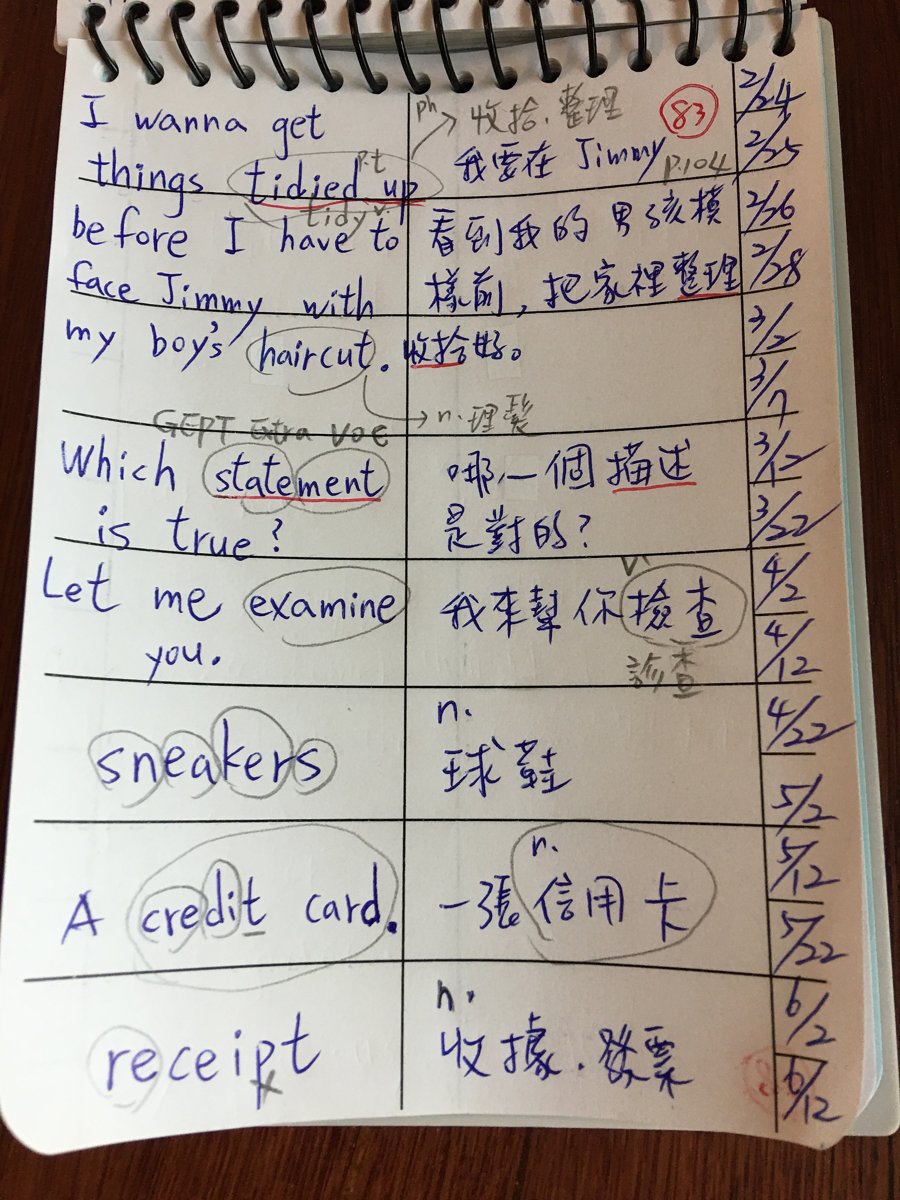 I wanna get
things tidied up
p.t
tidy v.
before I have to
face Jimmy with
my boy's haircut.
ph
收拾.整理
83
我要在 Jimmy
p.104
看到我的男孩模
樣前,把家裡整理
收拾好。
n.理髮
GEPT Extra voc
Which statement
is true?
哪一個描述
是對的?
Let me examine
you.
v.
我來幫你檢查
診查
sneakers
n.
球鞋
A credit card.
n.
一張信用卡
receipt
x
n.
收據.發票
2/24
2/25
2/26
2/28
3/2
3/7
3/12
3/22
4/2
4/12
4/22
5/2
5/12
5/22
6/2
6/12